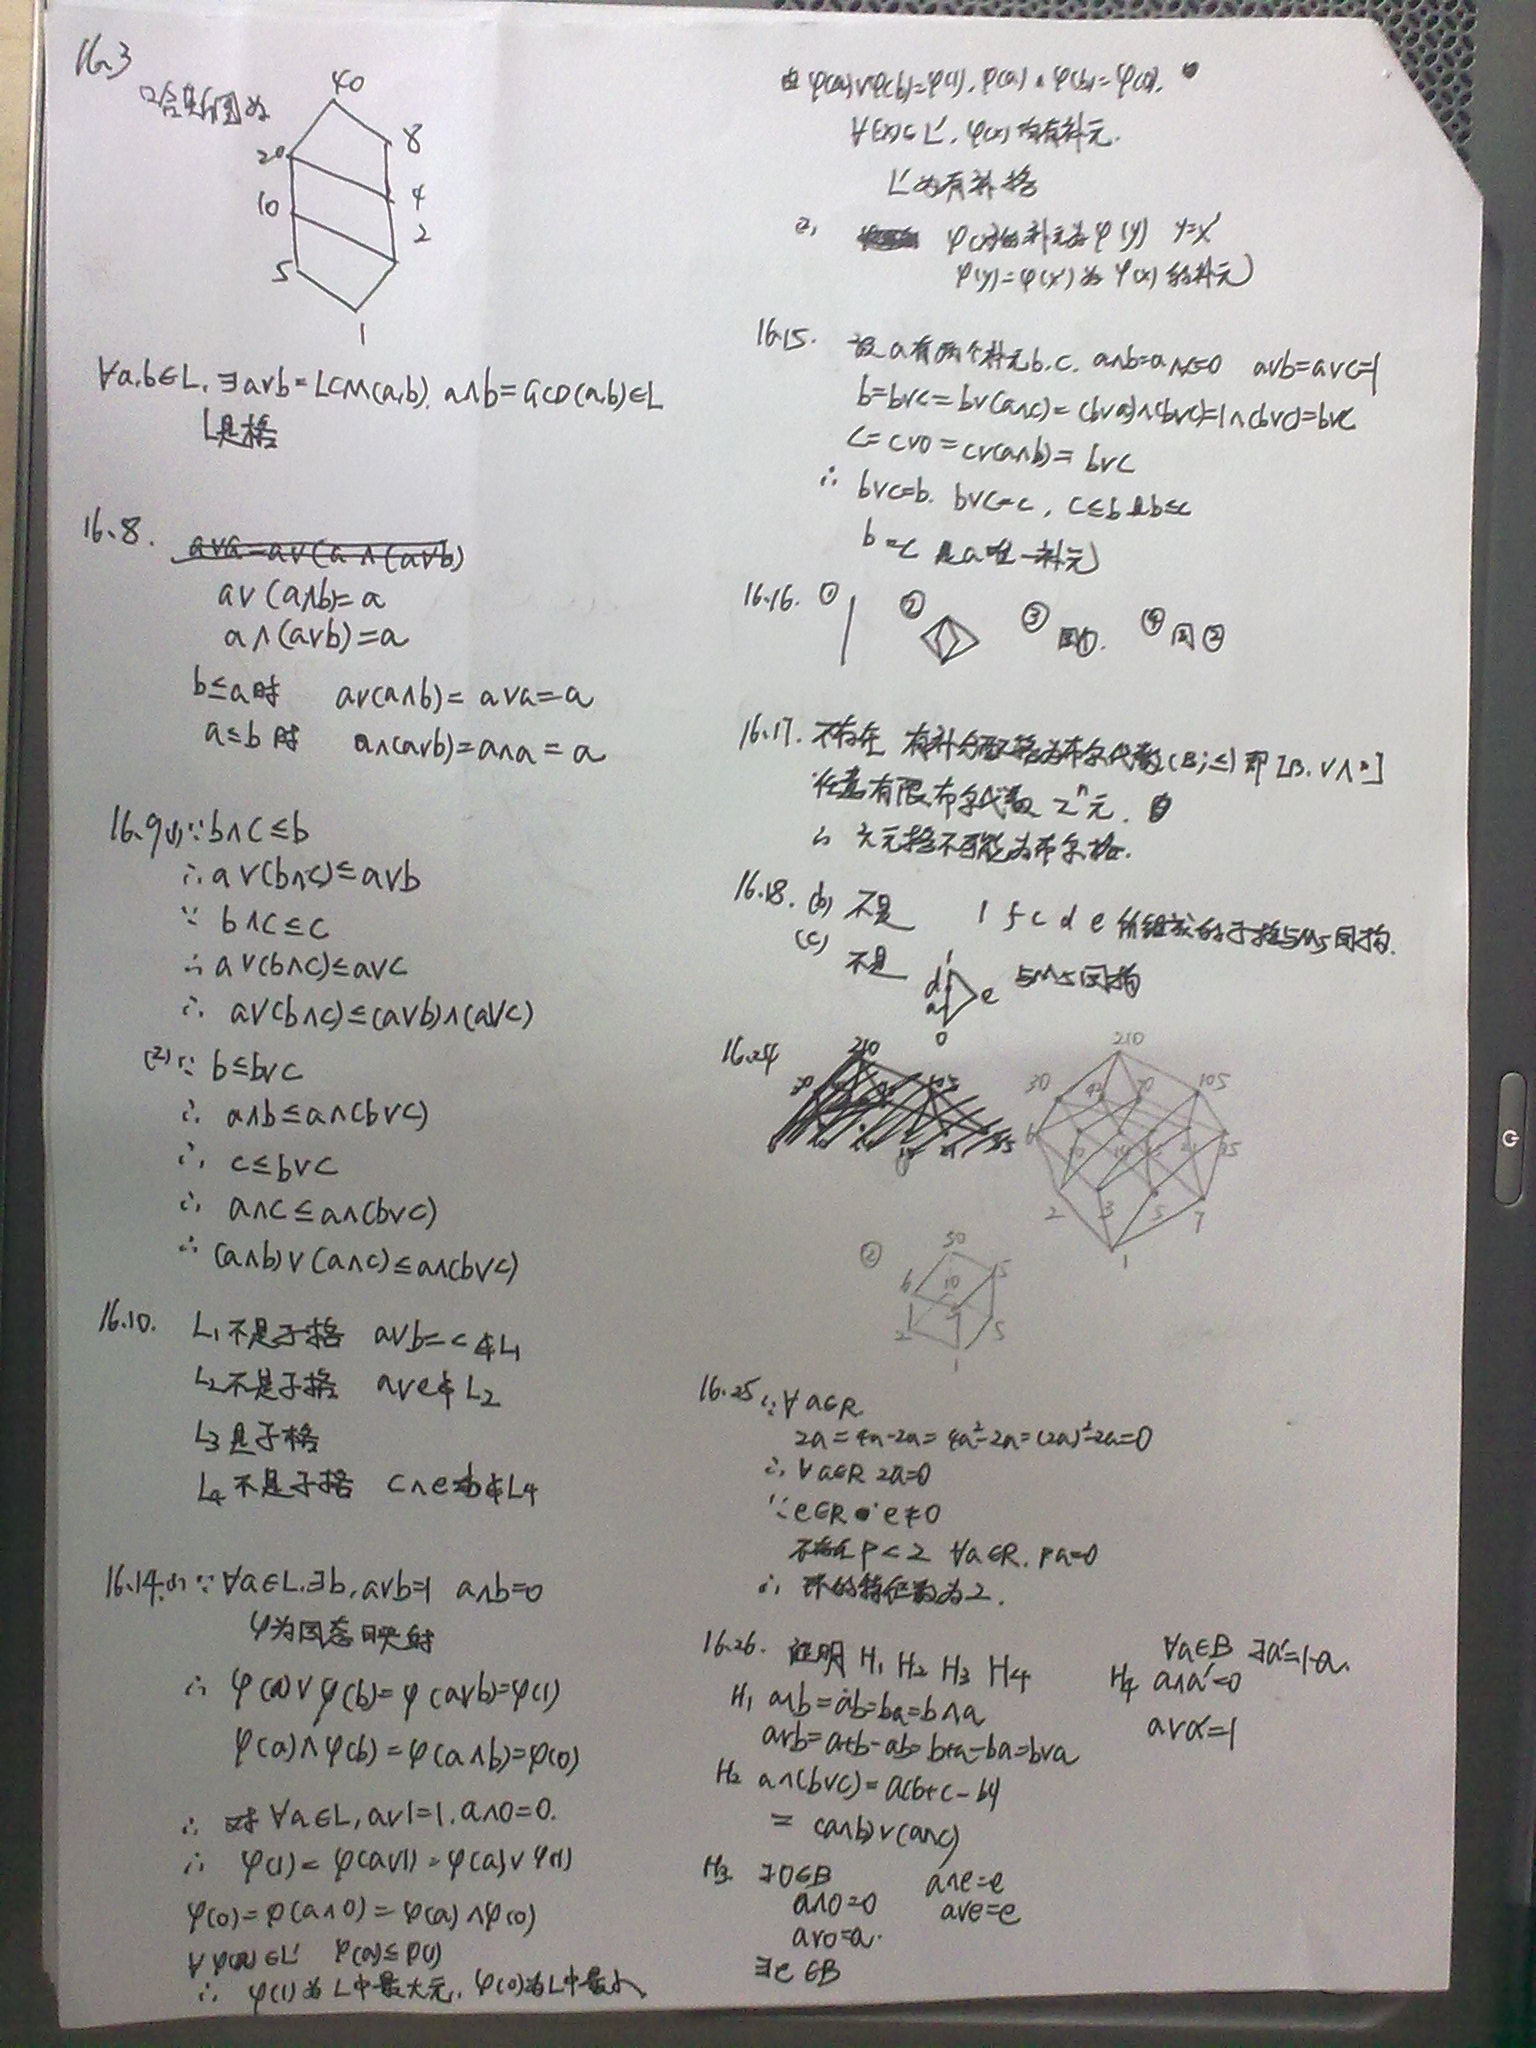 16.3
哈斯图为
40
20
8
10
4
2
5
1
∀a,b∈L, ∃a∨b=LCM(a,b), a∧b=GCD(a,b)∈L
L是格
16.8.
a∨(a∧b)=a
a∧(a∨b)=a
b≤a时 a∨(a∧b)=a∨a=a
a≤b时 a∧(a∨b)=a∧a=a
16.9(1)∵b∧c≤b
∴a∨(b∧c)≤a∨b
∵b∧c≤c
∴a∨(b∧c)≤a∨c
∴a∨(b∧c)≤(a∨b)∧(a∨c)
(2)∵b≤b∨c
∴a∧b≤a∧(b∨c)
∴c≤b∨c
∴a∧c≤a∧(b∨c)
∴(a∧b)∨(a∧c)≤a∧(b∨c)
16.10. L₁不是子格 a∨b=c∉L₁
L₂不是子格 a∨e∉L₂
L₃是子格
L₄不是子格 c∧e=b∉L₄
16.14.(1)∵∀a∈L,∃b,a∨b=1 a∧b=0
φ为同态映射
∴φ(a)∨φ(b)=φ(a∨b)=φ(1)
φ(a)∧φ(b)=φ(a∧b)=φ(0)
∴对∀a∈L,a∨1=1,a∧0=0.
∴φ(1)=φ(a∨1)=φ(a)∨φ(1)
φ(0)=φ(a∧0)=φ(a)∧φ(0)
∀φ(a)∈L' φ(a)≤φ(1)
∴φ(1)为L中最大元,φ(0)为L中最小
由φ(a)∨φ(b)=φ(1),φ(a)∧φ(b)=φ(0),
φ(x)均有补元.
L'为有补格
2, φ(x)的补元为φ(y) y=x'
φ(y)=φ(x')为φ(x)的补元
16.15. 设a有两个补元b,c, a∧b=a∧c=0 a∨b=a∨c=1
b=b∨c=b∨(a∧c)=(b∨a)∧(b∨c)=1∧(b∨c)=b∨c
c=c∨0=c∨(a∧b)=b∨c
∴b∨c=b, b∨c=c, c≤b且b≤c
b=c 是a唯一补元
16.16. ① ② ③同①. ④同②
16.17. 不存在 有补分配格为布尔代数(B;≤)即[B,∨∧']
任意有限布尔代数2ⁿ元.
∴ 六元格不可能为布尔格.
16.18. (b) 不是 1 f c d e 所组成的子格与M₅同构.
(c) 不是
1
d
a
e
0
与M₅同构
16.24
210
30 42 70 105
6 10 14 15 21 35
2 3 5 7
1
②
30
6 10 15
2 5
1
16.25 ∵∀a∈R
2a=4a-2a=4a²-2a=(2a)²-2a=0
∴∀a∈R 2a=0
∵e∈R e≠0
不存在p<2 ∀a∈R,pa=0
∴环的特征数为2.
16.26. 证明H₁ H₂ H₃ H₄
H₁ a∧b=ab=ba=b∧a
a∨b=a+b-ab=b+a-ba=b∨a
H₂ a∧(b∨c)=a(b+c-
=(a∧b)∨(a∧c)
H₃ ∃0∈B
a∧0=0
a∨0=a.
∃e∈B
a∧e=e
a∨e=e
∀a∈B ∃a'=1-a
H₄ a∧a'=0
a∨a'=1